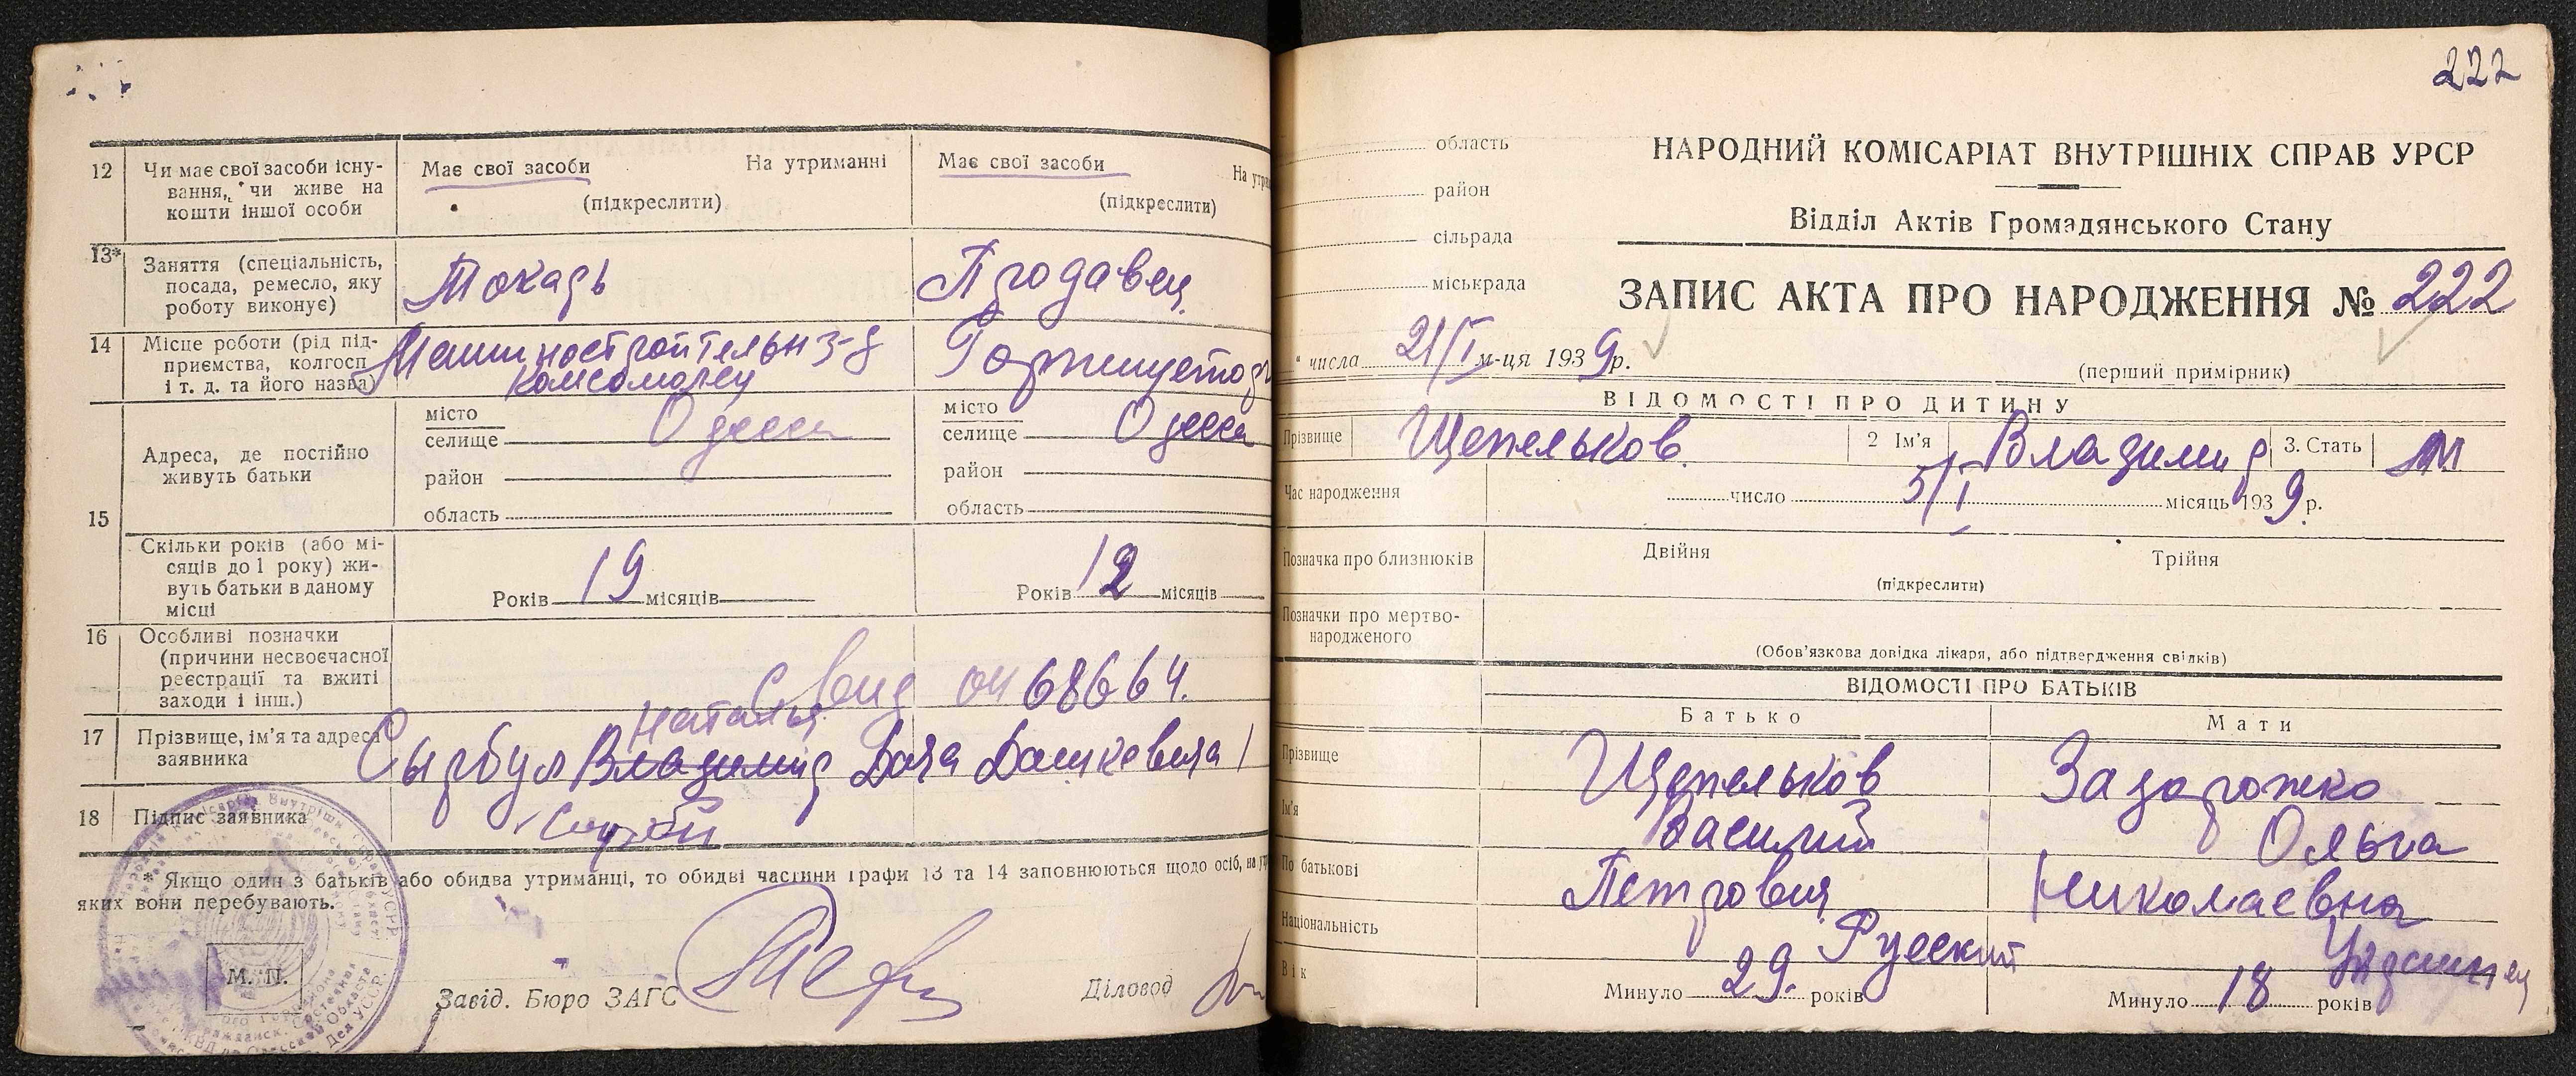 12 Чи має свої засоби існування, чи живе на кошти іншої особи
Має свої засоби На утриманні
(підкреслити)
Має свої засоби На утри
(підкреслити)
13* Заняття (спеціальність, посада, ремесло, яку роботу виконує)
Токарь
Продавец
14 Місце роботи (рід підприємства, колгосп і т. д. та його назва)
Машиностроительн з-д
Комсомолец
15 Адреса, де постійно живуть батьки
місто
селище Одесса
район
область
місто
селище Одесса
район
область
Скільки років (або місяців до 1 року) живуть батьки в даному місці
Років 19 місяців
Років 12 місяців
16 Особливі позначки (причини несвоєчасної реєстрації та вжиті заходи і інш.)
68664.
17 Прізвище, ім'я та адреса заявника
Наталья
Сырбул Владимир Дача Дашкевича 1
18 Підпис заявника
* Якщо один з батьків або обидва утриманці, то обидві частини графи 13 та 14 заповнюються щодо осіб, на
яких вони перебувають.
М. П.
Завід. Бюро ЗАГС
Діловод
222
область
район
сільрада
міськрада
НАРОДНИЙ КОМІСАРІАТ ВНУТРІШНІХ СПРАВ УРСР
Відділ Актів Громадянського Стану
ЗАПИС АКТА ПРО НАРОДЖЕННЯ № 222
" числа 21/I м-ця 1939 р.
(перший примірник)
ВІДОМОСТІ ПРО ДИТИНУ
Прізвище Щепельков. 2 Ім'я Владимир 3. Стать М
Час народження число 5/I місяць 1939 р.
Позначка про близнюків Двійня Трійня
(підкреслити)
Позначки про мертвонародженого
(Обов'язкова довідка лікаря, або підтвердження свідків)
ВІДОМОСТІ ПРО БАТЬКІВ
Батько Мати
Прізвище Щепельков Задорожко
Ім'я Василий Ольга
По батькові Петрович Николаевна
Національність Русский Украинец
Вік Минуло 29. років Минуло 18 років